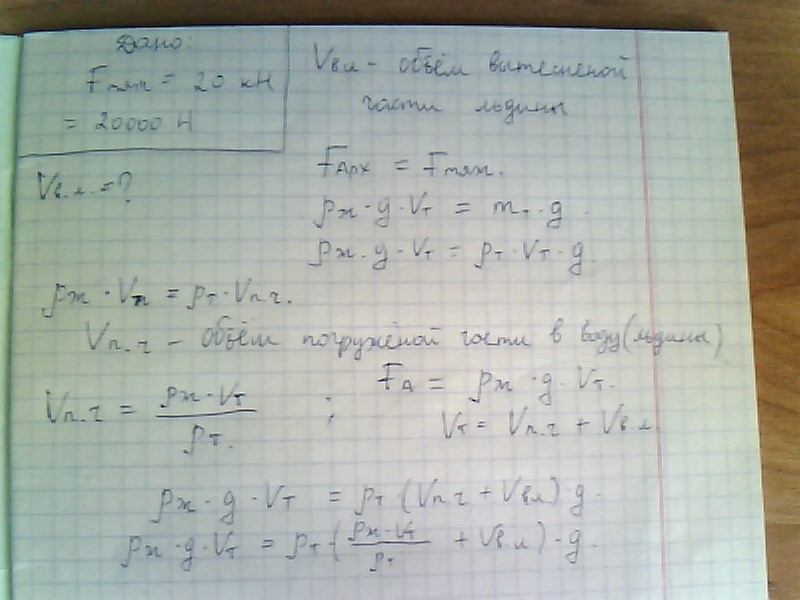 Дано:
Fтяж = 20 кН
= 20000 Н
Vв.л. = ?
Vвл - объём вытесненой
части льдины
FАрх = Fтяж.
ρж · g · Vт = mт · g.
ρж · g · Vт = ρт · Vт · g.
ρж · Vт = ρт · Vп.ч.
Vп.ч - объём погружёной части в воду (льдины)
Vп.ч = ρж · Vт / ρт. ;
FА = ρж · g · Vт.
Vт = Vп.ч + Vв.л.
ρж · g · Vт = ρт · (Vп.ч + Vвл) · g.
ρж · g · Vт = ρт · (ρж · Vт / ρт + Vв.л) · g.